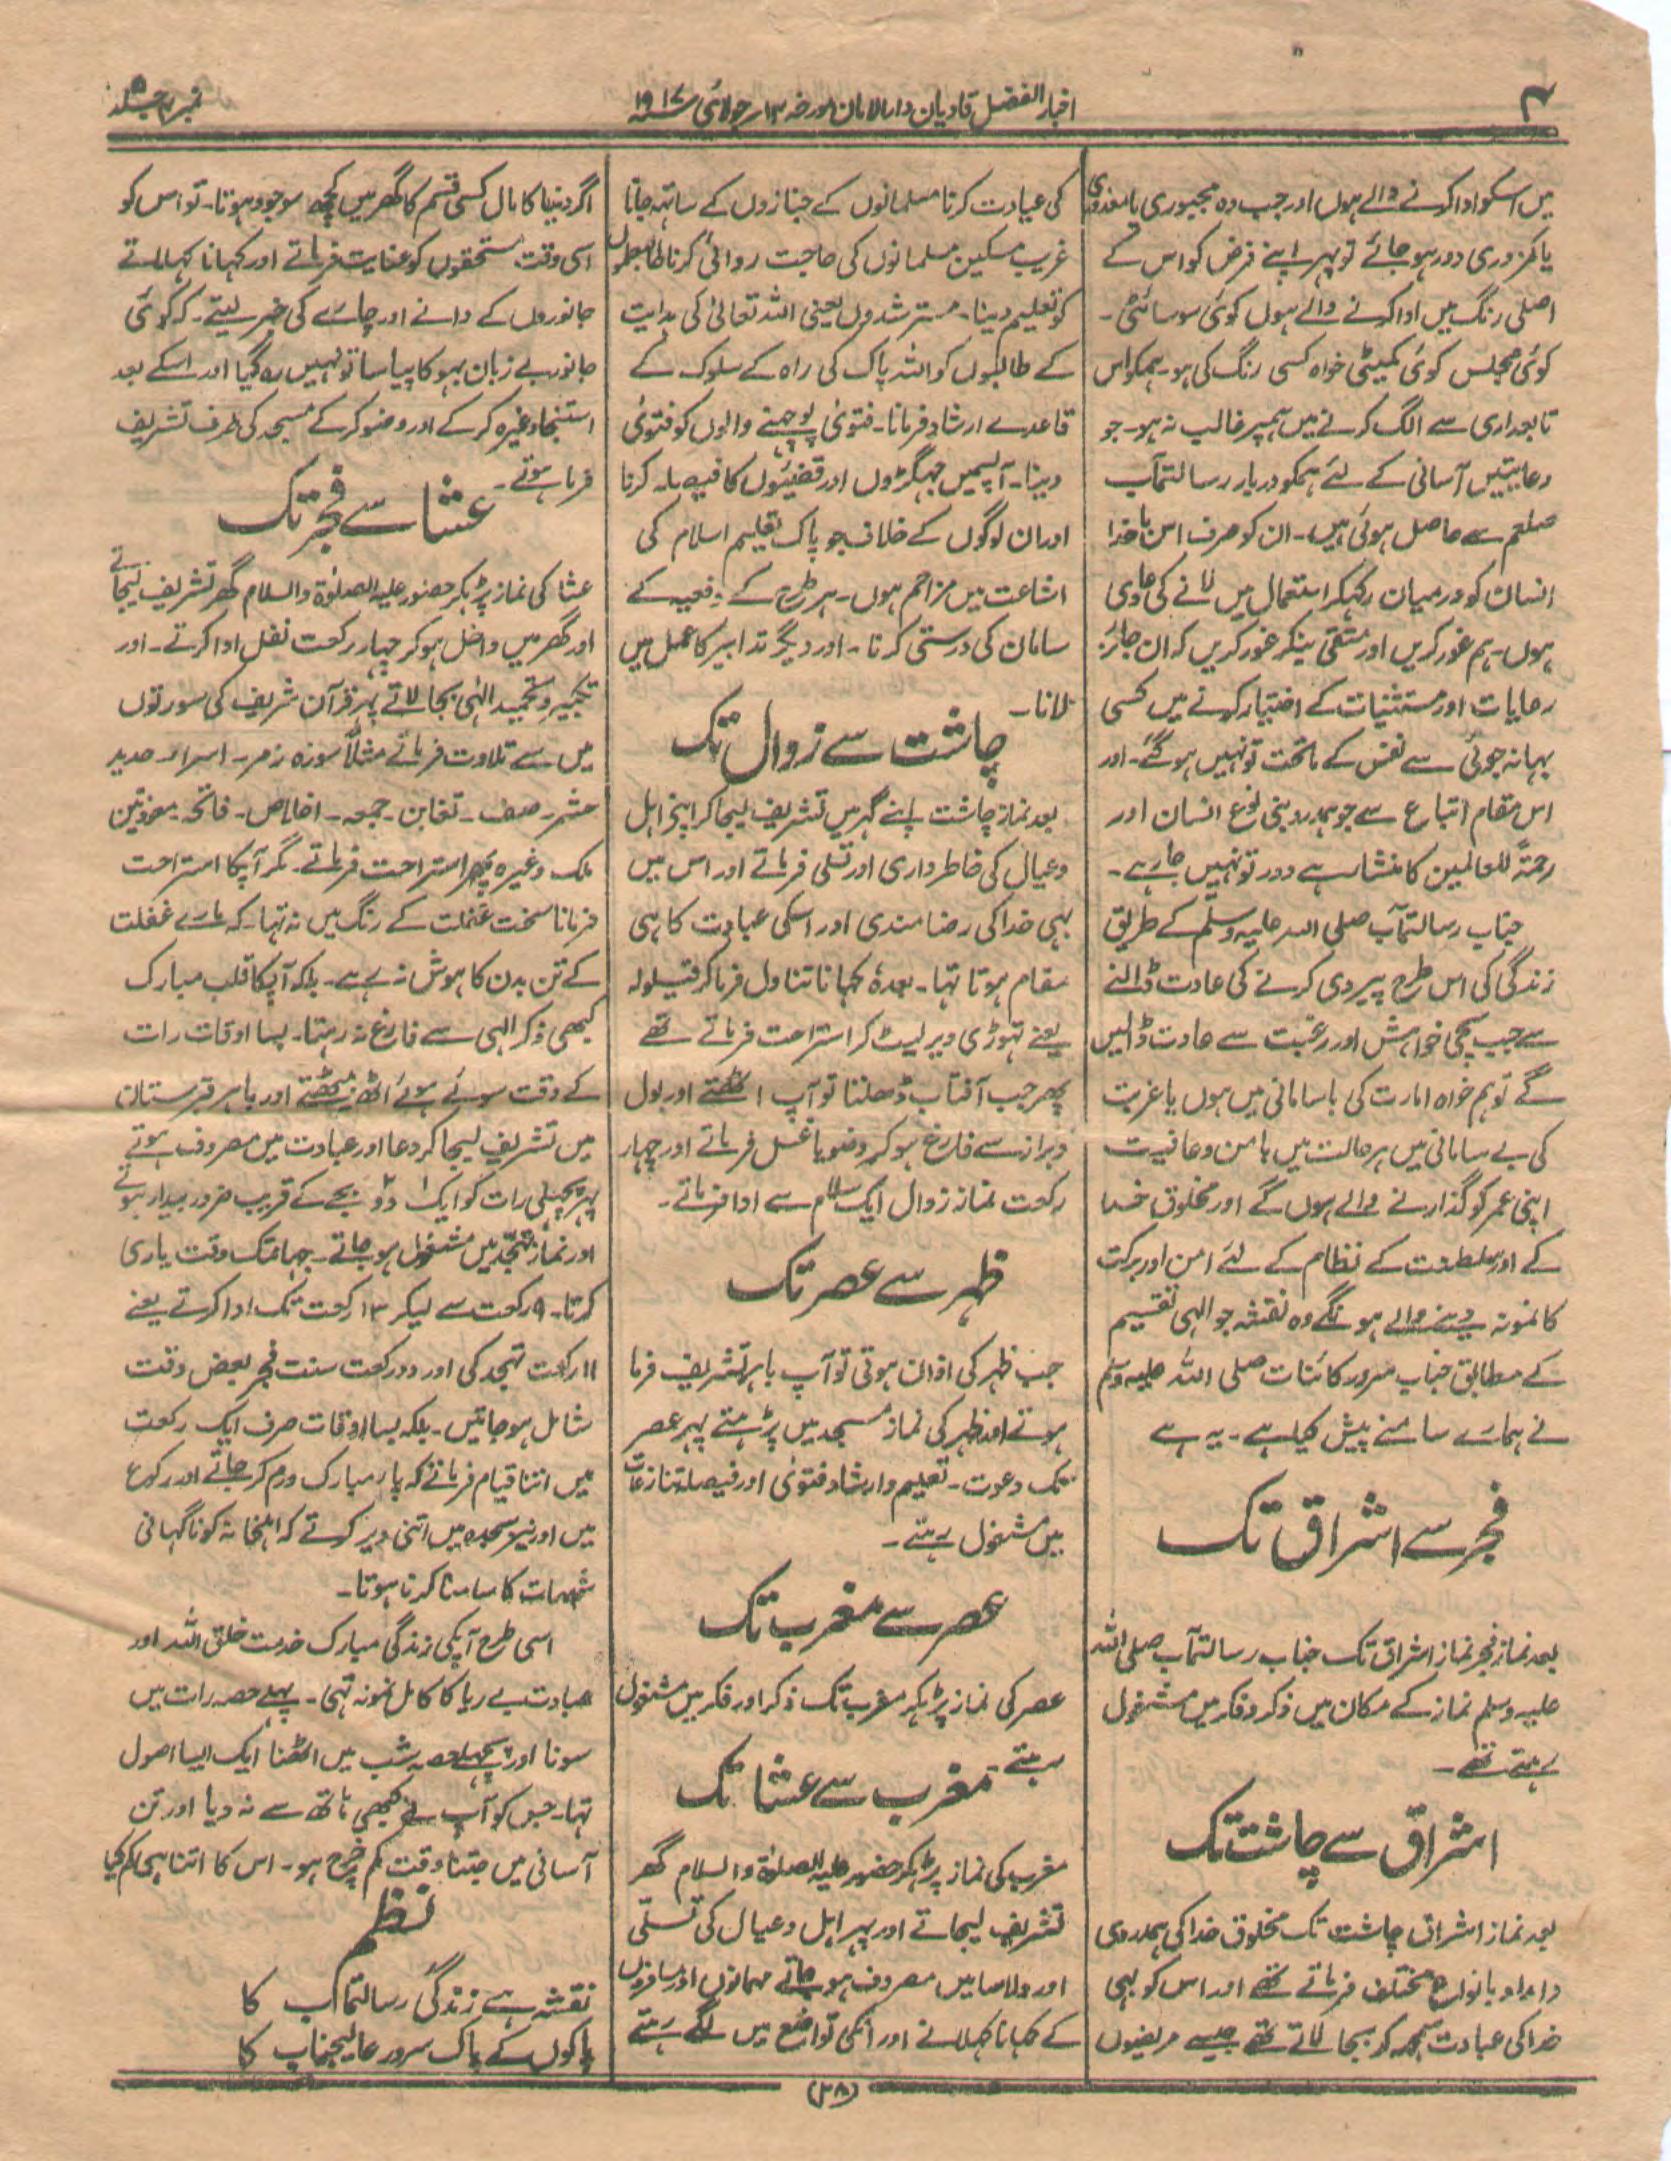 ۴
اخبار الفضل قادیان دارالامان مورخہ ۱۳؍ جولائی ۱۹۱۷ء
نمبر ۴ جلد ۵
میں اسکو ادا کرنے والے ہوں اور جب وہ مجبوری یا معذوری
یا کمزوری دور ہو جائے تو پہر اپنے فرض کو اس کے
اصلی رنگ میں ادا کرنے والے ہوں کوئی سوسائٹی۔
کوئی مجلس کوئی کمیٹی خواہ کسی رنگ کی ہو۔ ہمکو اس
تابعداری سے الگ کرنے میں ہمپر غالب نہ ہو۔ جو
رعایتیں آسانی کے لئے ہمکو دربار رسالتمآب
صلعم سے حاصل ہوئی ہیں۔ ان کو صرف اس باخدا
انسان کو درمیان رکہکر استعمال میں لانے کی عادی
ہوں۔ ہم غور کریں اور متقی بنکر غور کریں کہ ان جائز
رعایات اور مستثنیات کے اختیار کرنے میں کسی
بہانہ جوئی سے نفس کے ماتحت تو نہیں ہو گئے۔ اور
اس مقام اتباع سے جو ہمدردی بنی نوع انسان اور
رحمۃ للعالمین کا منشاء ہے دور تو نہیں جا رہے۔
جناب رسالتمآب صلی اللہ علیہ وسلم کے طریق
زندگی کی اس طرح پیروی کرنے کی عادت ڈالنے
سے جب سچی خواہش اور رغبت سے عادت ڈالیں
گے تو ہم خواہ امارت کی باسامانی میں ہوں یا غربت
کی بے سامانی میں ہر حالت میں با من و عافیت
اپنی عمر کو گذارنے والے ہوں گے اور مخلوق خدا
کے اور سلطنت کے نظام کے لئے امن اور برکت
کا نمونہ دینے والے ہونگے وہ نقشہ جو الہی تقسیم
کے مطابق جناب سرور کائنات صلی اللہ علیہ وسلم
نے ہمارے سامنے پیش کیا ہے۔ یہ ہے
فجر سے اشراق تک
بعد نماز فجر نماز اشراق تک جناب رسالتمآب صلی اللہ
علیہ وسلم نماز کے مکان میں ذکر و فکر میں مشغول
رہتے تھے۔
اشراق سے چاشت تک
بعد نماز اشراق چاشت تک مخلوق خدا کی ہمدردی
و امداد بانواع مختلف فرماتے تھے اور اس کو بہی
خدا کی عبادت سمجہ کر بجا لاتے تھے جیسے مریضوں
کی عیادت کرنا مسلمانوں کے جنازوں کے ساتہہ جانا
غریب مسکین مسلمانوں کی حاجت روائی کرنا طالبعلموں
کو تعلیم دینا۔ مسترشدوں یعنی اللہ تعالیٰ کی ہدایت
کے طالبوں کو اللہ پاک کی راہ کے سلوک کے
قاعدے ارشاد فرمانا۔ فتویٰ پوچہنے والوں کو فتویٰ
دینا۔ آپسمیں جہگڑوں اور قضیوں کا فیصلہ کرنا
اور ان لوگوں کے خلاف جو پاک تعلیم اسلام کی
اشاعت میں مزاحم ہوں۔ ہر طرح کے دفعیہ کے
سامان کی درستی کرنا۔ اور دیگر تدابیر کا عمل میں
لانا۔
چاشت سے زوال تک
بعد نماز چاشت اپنے گہر میں تشریف لیجا کر اپنی اہل
و عیال کی خاطر داری اور تسلی فرماتے اور اس میں
بہی خدا کی رضامندی اور اسکی عبادت کا ہی
مقام ہوتا تہا۔ بعدہٗ کہانا تناول فرما کر قیلولہ
یعنے تہوڑی دیر لیٹ کر استراحت فرماتے تھے
پھر جب آفتاب ڈھلتا تو آپ اٹھتے اور بول
و براز سے فارغ ہو کر وضو یا غسل فرماتے اور چہار
رکعت نماز زوال ایک سلام سے ادا فرماتے۔
ظہر سے عصر تک
جب ظہر کی اذان ہوتی تو آپ باہر تشریف فرما
ہوتے اور ظہر کی نماز مسجد میں پڑہتے پہر عصر
تک دعوت۔ تعلیم و ارشاد فتویٰ اور فیصلہ تنازعات
میں مشغول رہتے۔
عصر سے مغرب تک
عصر کی نماز پڑہکر مغرب تک ذکر اور فکر میں مشغول
رہتے
مغرب سے عشا تک
مغرب کی نماز پڑہکر حضور علیہ الصلوٰۃ والسلام گھر
تشریف لیجاتے اور پہر اہل و عیال کی تسلی
اور دلاسا میں مصروف ہو جاتے مہمانوں اور مسافروں
کے کہانا کہلانے اور انکی تواضع میں لگے رہتے
اگر دنیا کا مال کسی قسم کا گھر میں کچھ موجود ہوتا۔ تو اس کو
اسی وقت مستحقوں کو عنایت فرماتے اور کہانا کہلاتے
جانوروں کے دانے اور چارے کی خبر لیتے۔ کہ کوئی
جانور بے زبان بہوکا پیاسا تو نہیں رہ گیا اور اسکے بعد
استنجا وغیرہ کر کے اور وضو کر کے مسجد کی طرف تشریف
فرما ہوتے۔
عشا سے فجر تک
عشا کی نماز پڑہکر حضور علیہ الصلوٰۃ والسلام گھر تشریف لیجاتے
اور گھر میں داخل ہو کر چہار رکعت نفل ادا کرتے۔ اور
تکبیر و تحمید الہٰی بجا لاتے پہر قرآن شریف کی سورتوں
میں سے تلاوت فرماتے مثلاً سورہ زمر۔ اسراء حدید
حشر۔ صف۔ تغابن۔ جمعہ۔ اخلاص۔ فاتحہ۔ معوذتین
ملک وغیرہ پھر استراحت فرماتے۔ مگر آپکا استراحت
فرمانا سخت غفلت کے رنگ میں نہ تہا۔ کہ مارے غفلت
کے تن بدن کا ہوش نہ رہے۔ بلکہ آپکا قلب مبارک
کبھی ذکر الہی سے فارغ نہ رہتا۔ بسا اوقات رات
کے وقت سوئے ہوئے اٹھ بیٹھتے اور باہر قبرستان
میں تشریف لیجا کر دعا اور عبادت میں مصروف ہوتے
پہر پچھلی رات کو ایک دو بجے کے قریب ضرور بیدار ہوتے
اور نماز تہجد میں مشغول ہو جاتے۔ جہانتک وقت یاری
کرتا۔ ۹ رکعت سے لیکر ۱۳ رکعت تک ادا کرتے یعنے
۱۱ رکعت تہجد کی اور دو رکعت سنت فجر بعض وقت
شامل ہو جاتیں۔ بلکہ بسا اوقات صرف ایک رکعت
میں اتنا قیام فرماتے کہ پاء مبارک ورم کر جاتے اور رکوع
میں اور نیز سجدہ میں اتنی دیر کرتے کہ اہلخانہ کو ناگہانی
شبہات کا سامنا کرنا ہوتا۔
اسی طرح آپکی زندگی مبارک خدمت خلق اللہ اور
عبادت بے ریا کا کامل نمونہ تہی۔ پہلے حصہ رات میں
سونا اور پچہلے حصہ شب میں اٹھنا ایک ایسا اصول
تہا۔ جس کو آپ نے کبھی ہاتھ سے نہ دیا اور تن
آسانی میں جتنا وقت کم خرچ ہو۔ اس کا اتنا ہی کم کیا
نظم
نقشہ ہے زندگی رسالتمآب کا
پاکوں کے پاک سرور عالیجناب کا
(۲۸)